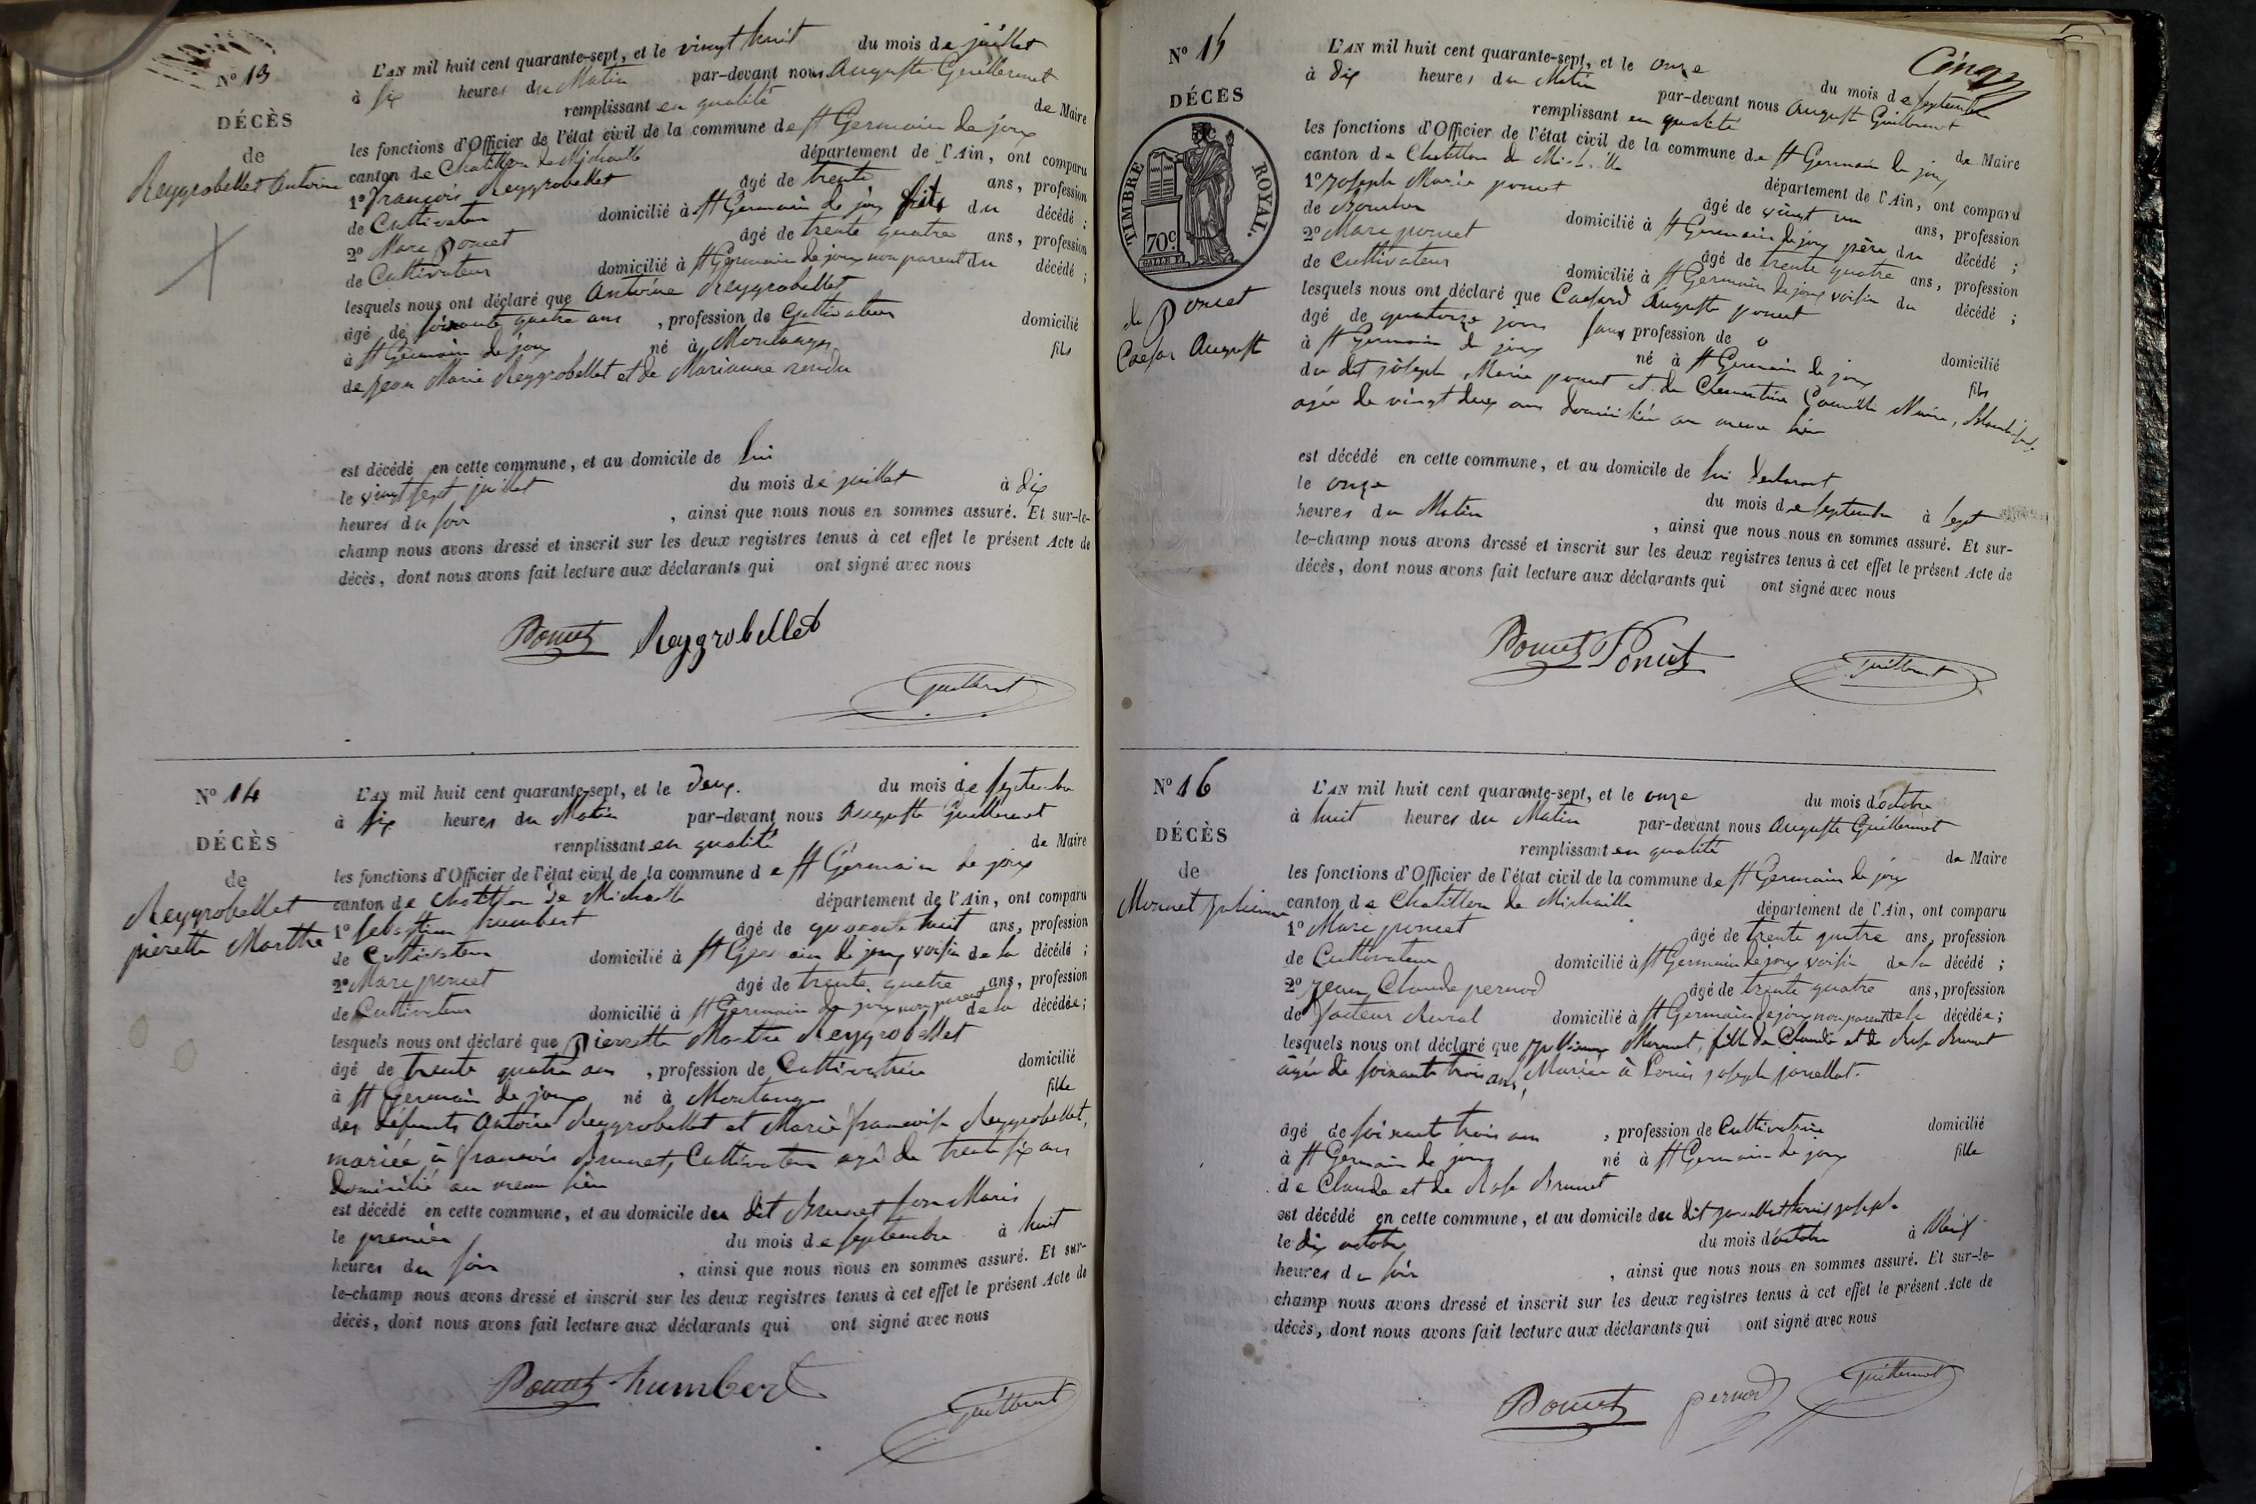 N° 13
DÉCÈS
de
Reygrobellet Antoine
L'AN mil huit cent quarante-sept, et le vingt huit du mois de juillet
à six heures du Matin par-devant nous Auguste Guillermet
remplissant en qualité de Maire
les fonctions d'Officier de l'état civil de la commune de St Germain de joux
canton de Chatillon de Michaille département de l'Ain, ont comparu
1° François Reygrobellet âgé de trente ans, profession
de Cultivateur domicilié à St Germain de joux fils du décédé ;
2° Marc Poncet âgé de trente quatre ans, profession
de Cultivateur domicilié à St Germain de joux non parent du décédé ;
lesquels nous ont déclaré que Antoine Reygrobellet
âgé de soixante quatre ans , profession de Cultivateur domicilié
à St Germain de joux né à Montanges fils
de Jean Marie Reygrobellet et de Marianne rendu
est décédé en cette commune, et au domicile de lui
le vingt sept juillet du mois de juillet à dix
heures du soir , ainsi que nous nous en sommes assuré. Et sur-le-
champ nous avons dressé et inscrit sur les deux registres tenus à cet effet le présent Acte de
décès, dont nous avons fait lecture aux déclarants qui ont signé avec nous
Poncet Reygrobellet
Guillermet
N° 14
DÉCÈS
de
Reygrobellet
pierrette Marthe
L'AN mil huit cent quarante-sept, et le deux. du mois de septembre
à six heures du Matin par-devant nous Auguste Guillermet
remplissant en qualité de Maire
les fonctions d'Officier de l'état civil de la commune de St Germain de joux
canton de Chatillon de Michaille département de l'Ain, ont comparu
1° Sebastien humbert âgé de quarante huit ans, profession
de Cultivateur domicilié à St Germain de joux voisin de la décédé ;
2° Marc poncet âgé de trente quatre ans, profession
de Cultivateur domicilié à St Germain de joux non parent de la décédée ;
lesquels nous ont déclaré que Pierrette Marthe Reygrobellet
âgé de trente quatre ans , profession de Cultivatrice domicilié
à St Germain de joux né à Montanges fille
des défunts Antoine Reygrobellet et Marie françoise Reygrobellet,
mariée à françois Brunet, Cultivateur agé de trente six ans
domicilié au meme lieu
est décédé en cette commune, et au domicile du dit Brunet son Maris
le premier du mois de septembre à huit
heures du soir , ainsi que nous nous en sommes assuré. Et sur-
le-champ nous avons dressé et inscrit sur les deux registres tenus à cet effet le présent Acte de
décès, dont nous avons fait lecture aux déclarants qui ont signé avec nous
Poncet humbert
Guillermet
Cinq
N° 15
DÉCÈS
TIMBRE ROYAL.
70c.
de Poncet
Caesar Auguste
L'AN mil huit cent quarante-sept, et le onze du mois de septembre
à dix heures du Matin par-devant nous Auguste Guillermet
remplissant en qualité de Maire
les fonctions d'Officier de l'état civil de la commune de St Germain de joux
canton de Chatillon de Michaille département de l'Ain, ont comparu
1° Joseph Marie poncet âgé de vingt un ans, profession
de domicilié à St Germain de joux père du décédé ;
2° Marc poncet âgé de trente quatre ans, profession
de Cultivateur domicilié à St Germain de joux voisin du décédé ;
lesquels nous ont déclaré que Caesard Auguste poncet
âgé de quatorze jours sans profession de 0 domicilié
à St Germain de joux né à St Germain de joux fils
du dit joseph Marie poncet et de Clementine
agée de vingt deux ans domiciliée au meme lieu
est décédé en cette commune, et au domicile de lui declarant
le onze du mois de septembre à sept
heures du Matin , ainsi que nous nous en sommes assuré. Et sur-
le-champ nous avons dressé et inscrit sur les deux registres tenus à cet effet le présent Acte de
décès, dont nous avons fait lecture aux déclarants qui ont signé avec nous
Poncet Poncet
Guillermet
N° 16
DÉCÈS
de
Mornet julienne
L'AN mil huit cent quarante-sept, et le onze du mois d'octobre
à huit heures du Matin par-devant nous Auguste Guillermet
remplissant en qualité de Maire
les fonctions d'Officier de l'état civil de la commune de St Germain de joux
canton de Chatillon de Michaille département de l'Ain, ont comparu
1° Marc poncet âgé de trente quatre ans, profession
de Cultivateur domicilié à St Germain de joux voisin de la décédé ;
2° Jean Claude pernod âgé de trente quatre ans, profession
de facteur Rural domicilié à St Germain de joux non parent de la décédée ;
lesquels nous ont déclaré que jullienne Mornet, fille de Claude et de Rose Brunet
agée de soixante trois ans, Mariée à Louis joseph
âgé de soixante trois ans , profession de Cultivatrice domicilié
à St Germain de joux né à St Germain de joux fille
de Claude et de Rose Brunet
est décédé en cette commune, et au domicile du dit Louis joseph
le dix octobre du mois d'octobre à Neuf
heures du soir , ainsi que nous nous en sommes assuré. Et sur-le-
champ nous avons dressé et inscrit sur les deux registres tenus à cet effet le présent Acte de
décès, dont nous avons fait lecture aux déclarants qui ont signé avec nous
Poncet pernod Guillermet